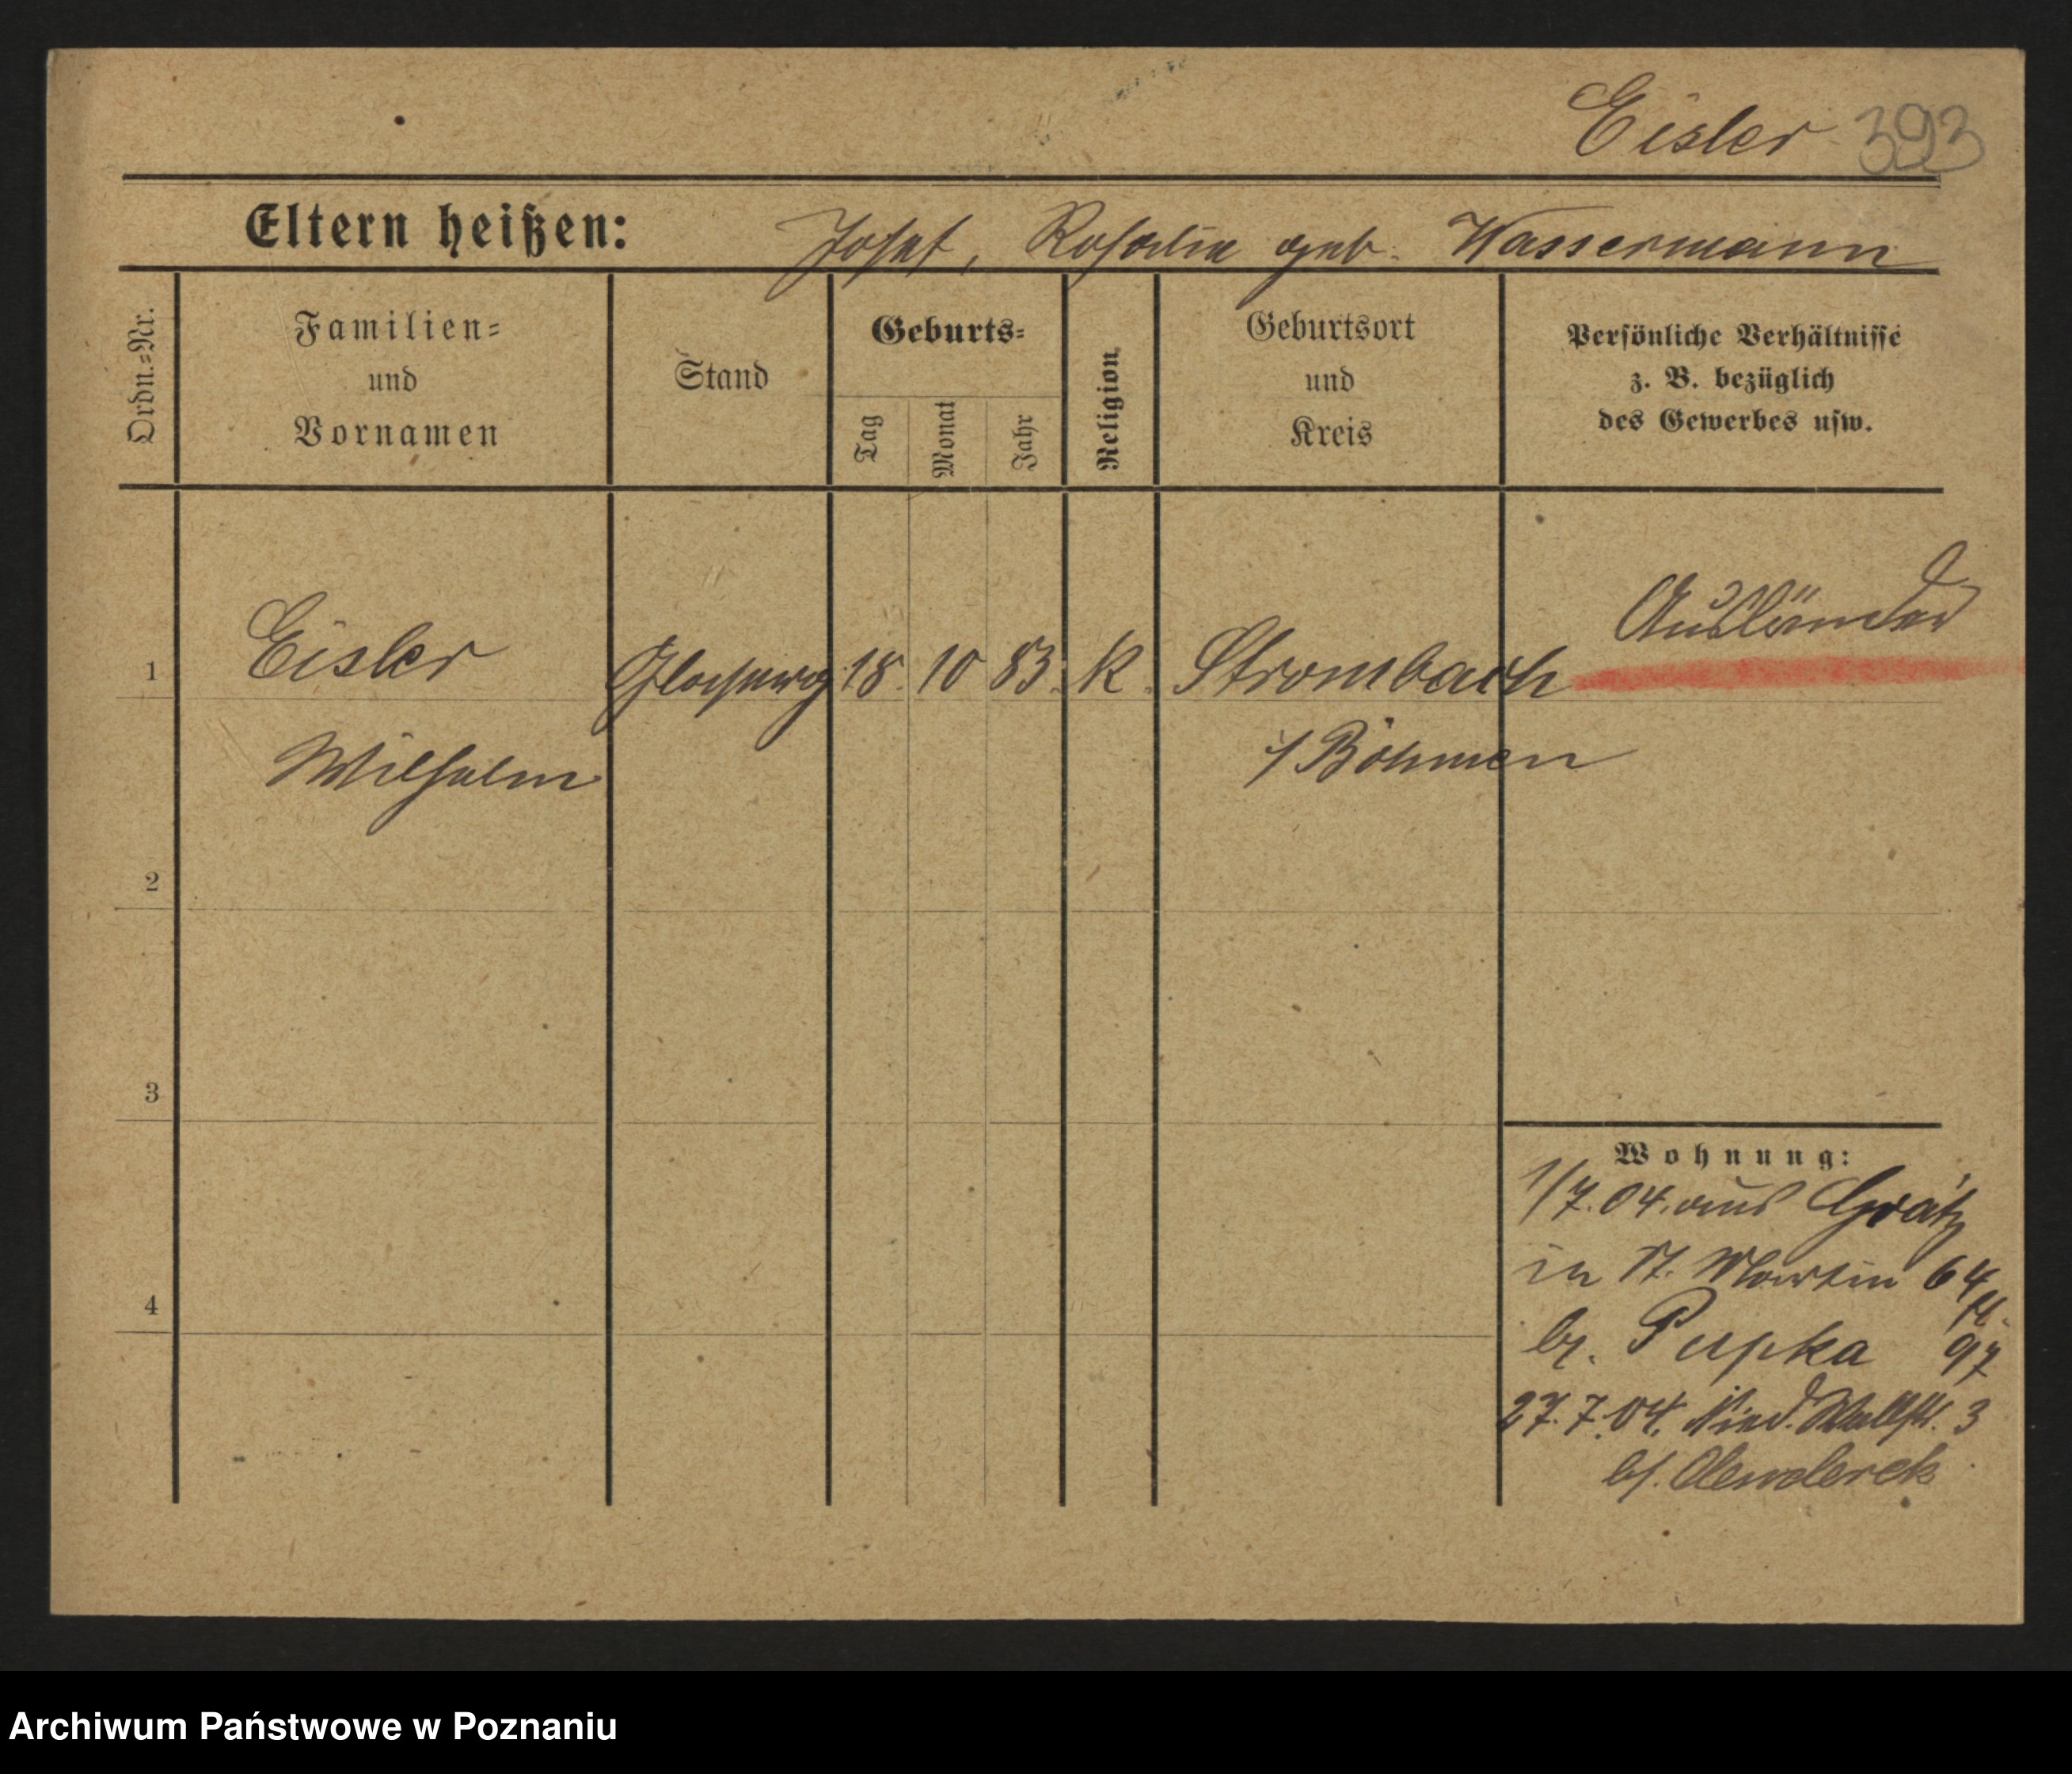 Eisler 393
Eltern heißen: Josef, Rosalie geb. Wassermann
Ordn.=Nr.
Familien=
und
Vornamen
Stand
Geburts=
Tag
Monat
Jahr
Religion
Geburtsort
und
Kreis
Persönliche Verhältnisse
z. B. bezüglich
des Gewerbes usw.
Ausländer
1 Eisler 18. 10 83. K. Strombach
Wilhelm i/ Böhmen
2
3
4
Wohnung:
1/7.04. aus Grätz
in St. Martin 64
bei Pupka 97
27.7.04. Nied. Wallstr. 3